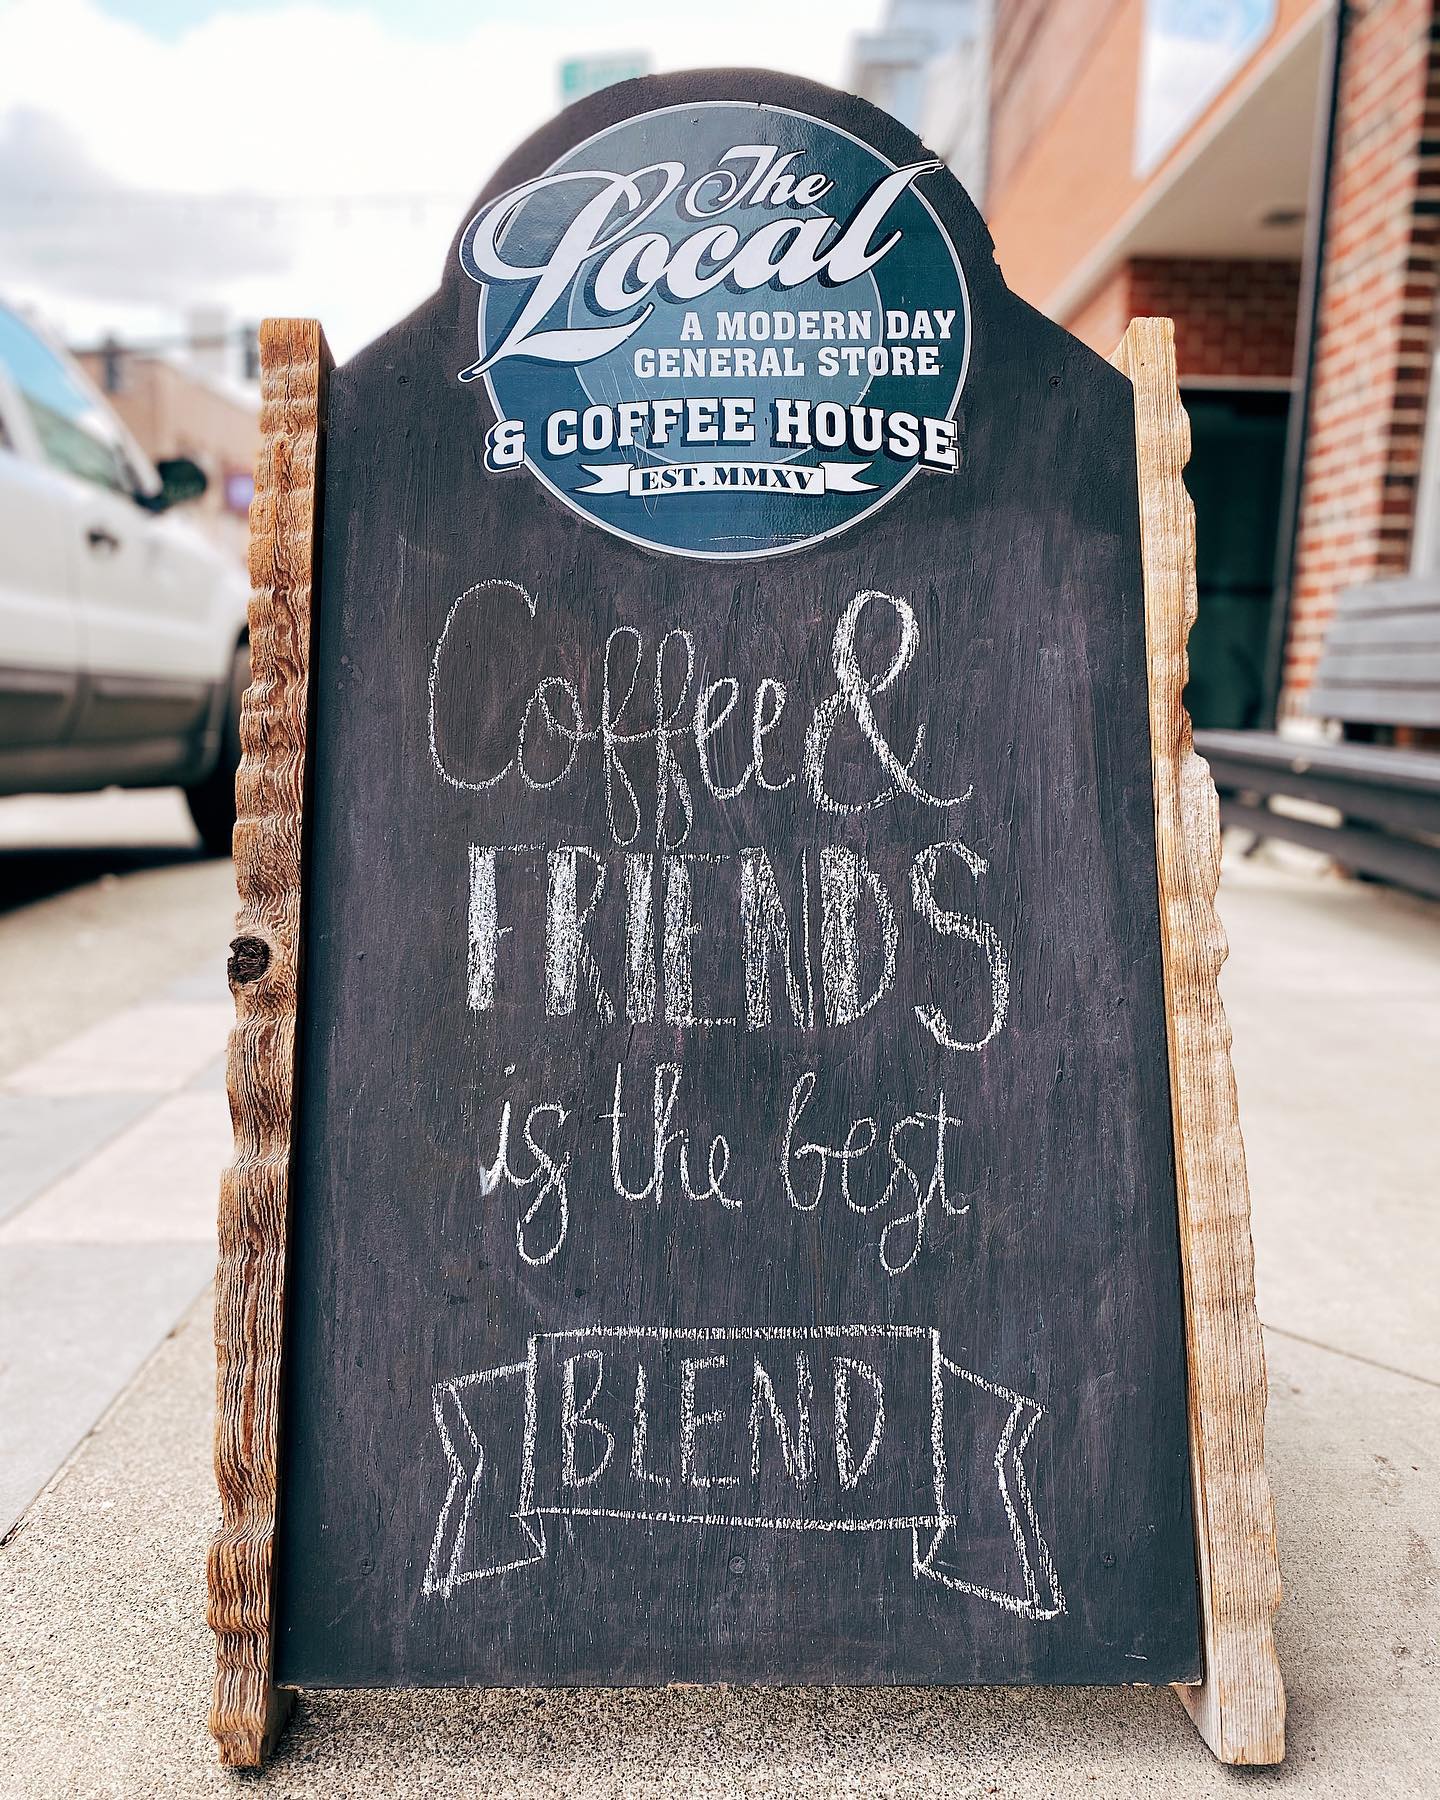 The
Local
A MODERN DAY
GENERAL STORE
& COFFEE HOUSE
EST. MMXV
Coffee &
FRIENDS
is the best
BLEND